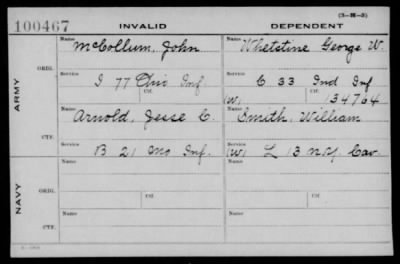 (3-H-3)
100467 INVALID DEPENDENT
Name Name
McCollum, John Whetstine George W.
ORIG. Service Service
I 77 Ohio Inf C 33 Ind Inf
ARMY
Ctf. Ctf.
(W) 134764
Name Name
Arnold, Jesse C. Smith, William
CTF. Service Service
B 21 Mo Inf. (W) L 13 N.Y. Cav.
Name Name
NAVY
ORIG. Ctf. Ctf.
Name Name
CTF.